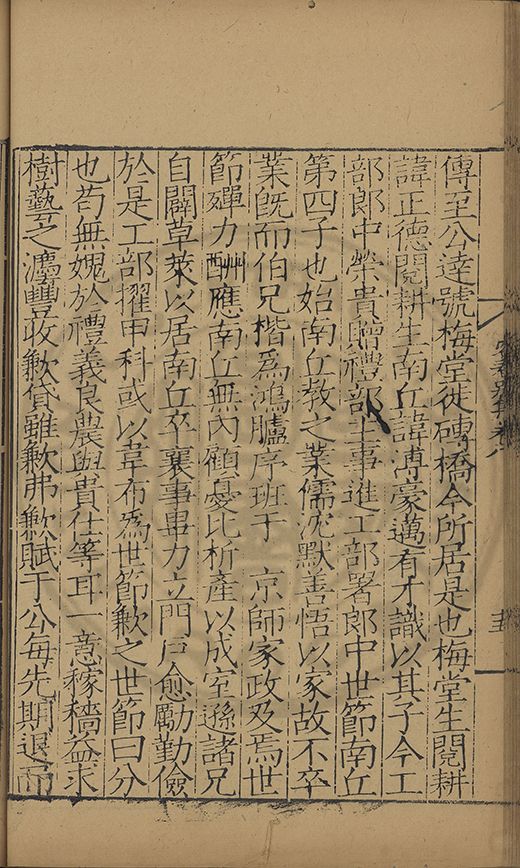 傳至公達號梅堂徙磚橋今所居是也梅堂生閱耕
諱正德閱耕生南丘諱溥豪邁有才識以其子今工
部郎中榮貴贈禮部主事進工部署郎中世節南丘
第四子也始南丘敎之業儒沈默善悟以家故不卒
業旣而伯兄楷爲鴻臚序班于 京師家政及焉世
節殫力酬應南丘無內顧憂比析產以成室遜諸兄
自闢草萊以居南丘卒襄事畢力立門戶愈勵勤儉
於是工部擢甲科或以韋布爲世節歉之世節曰分
也苟無媿於禮義良農與貴仕等耳一意稼穡益求
樹藝之灋豐收歉貸雖歉弗歉賦于公每先期退而